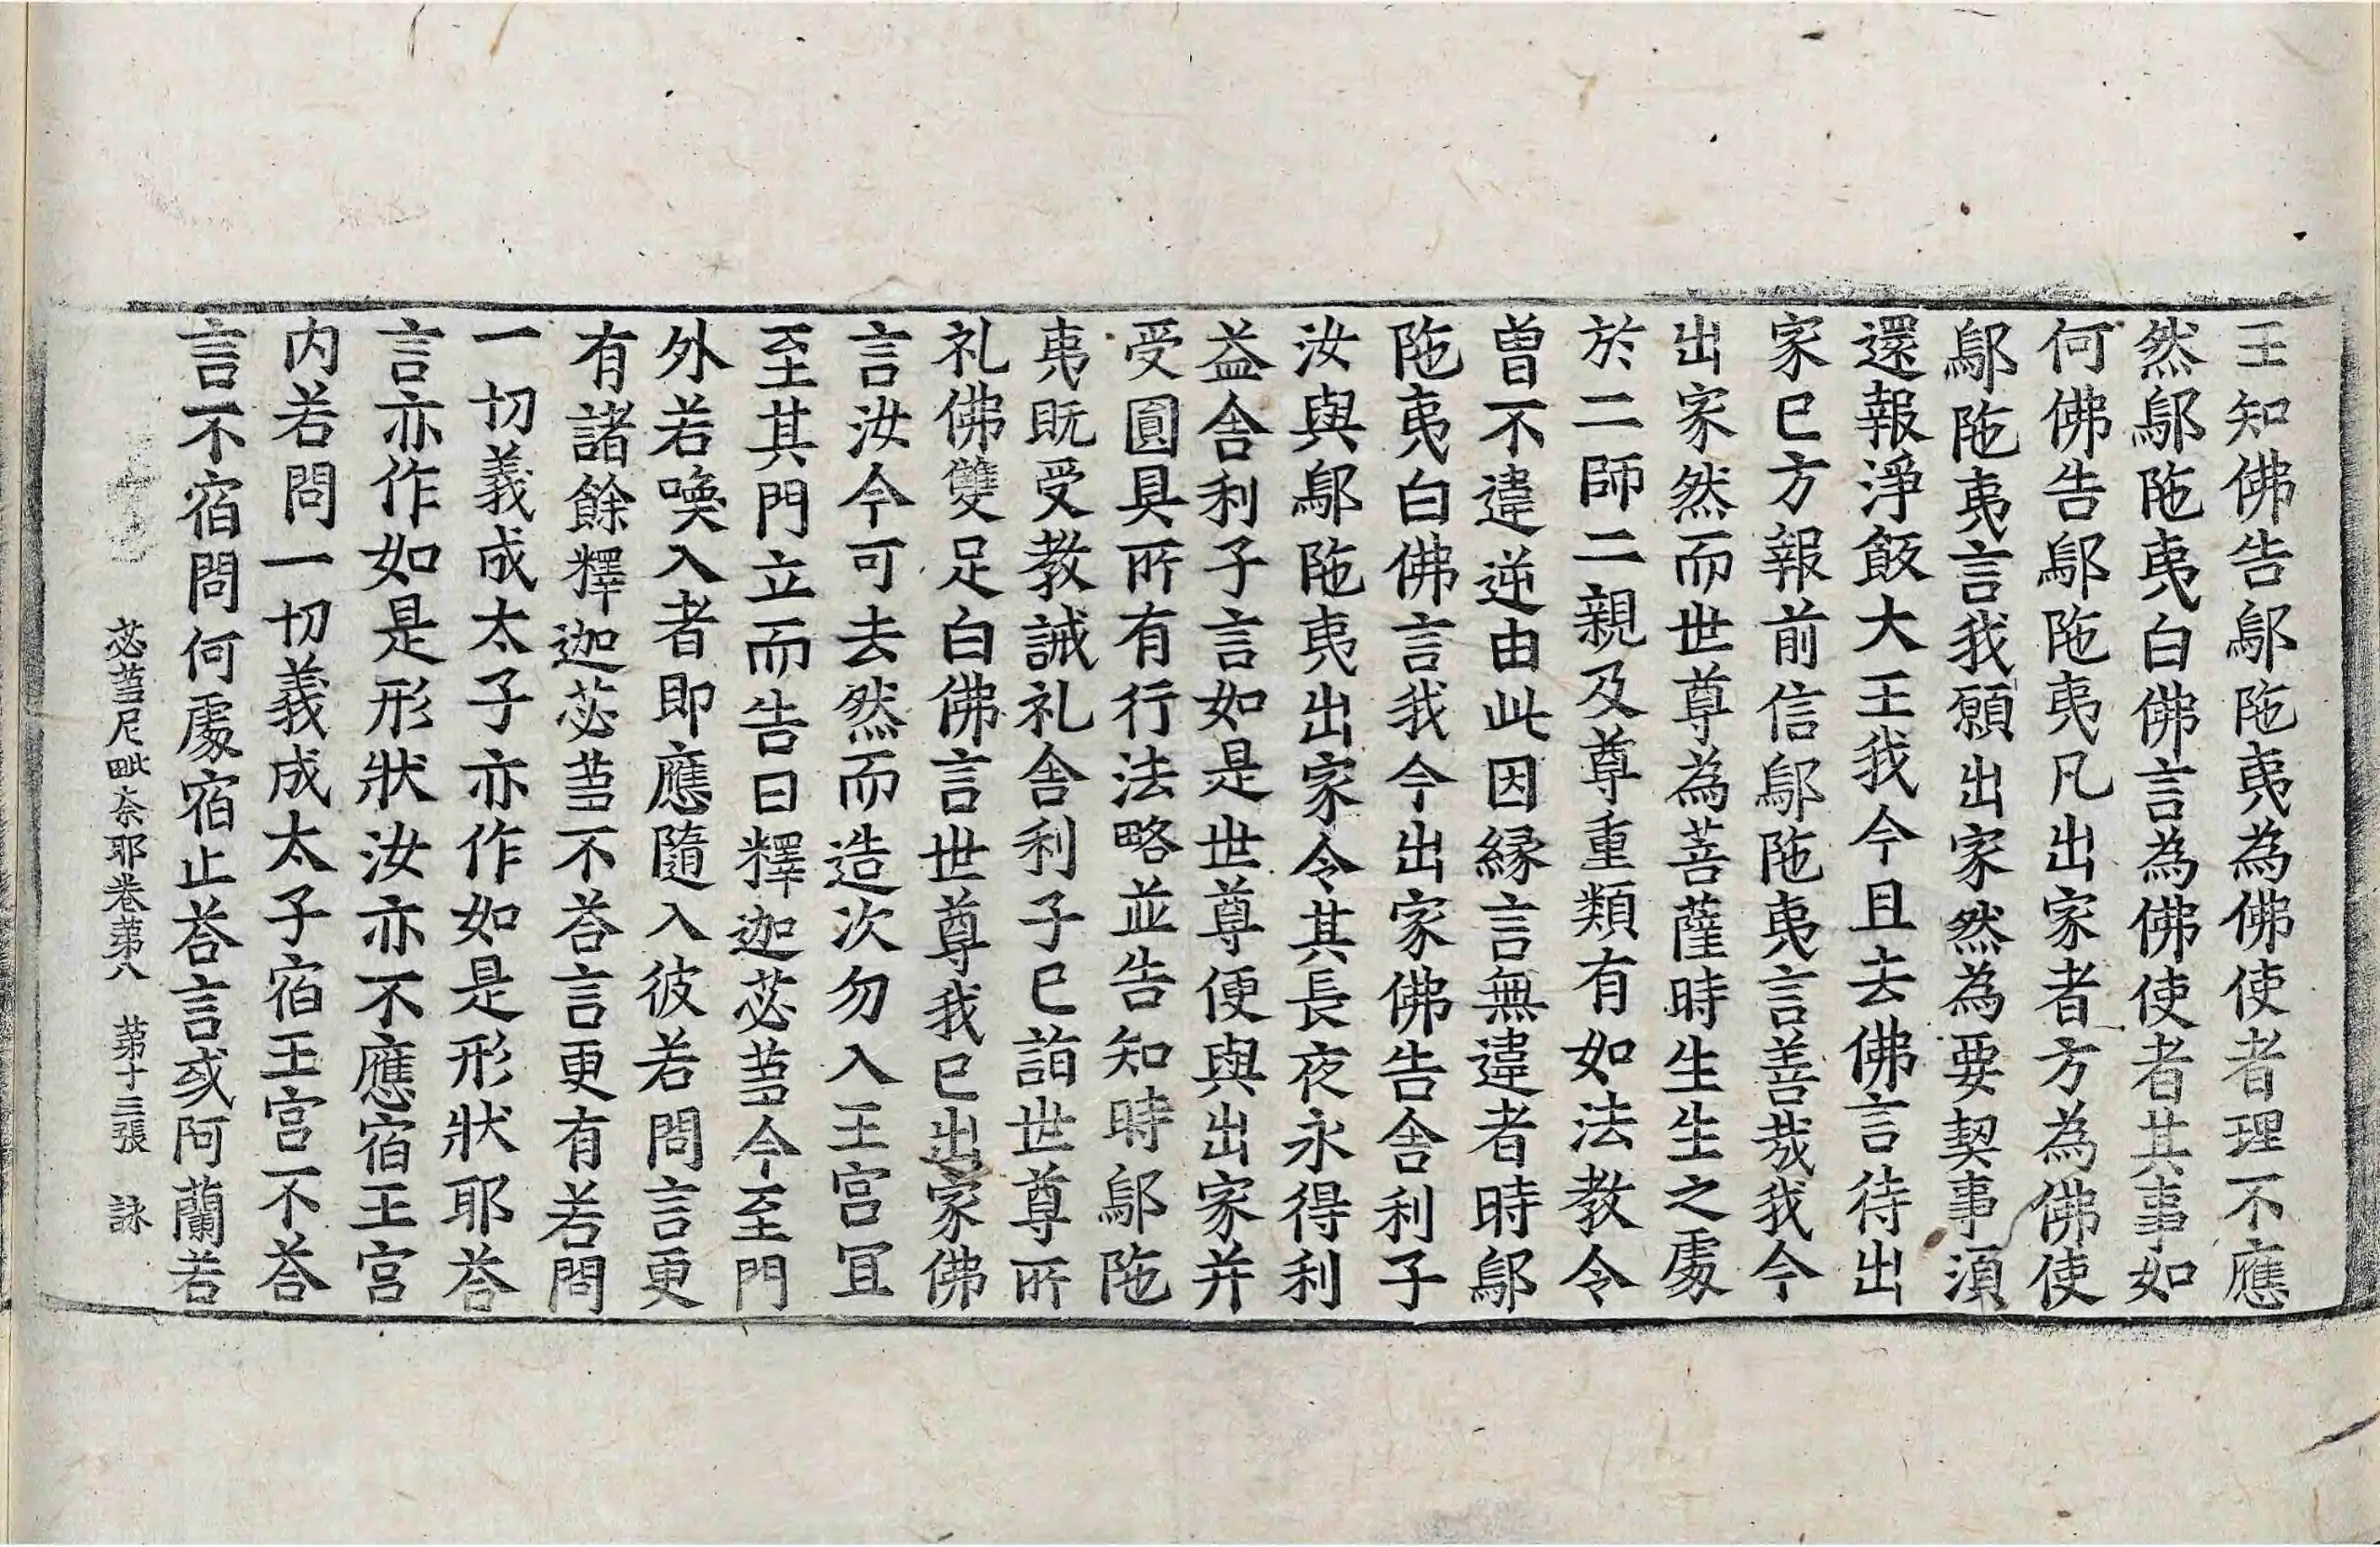 王知佛告鄔陁夷為佛使者理不應
然鄔陁夷白佛言為佛使者其事如
何佛告鄔陁夷凡出家者方為佛使
鄔陁夷言我願出家然為要契事湏
還報淨飯大王我今且去佛言待出
家已方報前信鄔陁夷言善哉我今
出家然而世尊為菩薩時生生之處
於二師二親及尊重類有如法教令
曾不違逆由此因縁言無違者時鄔
陁夷白佛言我今出家佛告舍利子
汝與鄔陁夷出家令其長夜永得利
益舍利子言如是世尊便與出家并
受圓具所有行法略並告知時鄔陁
夷既受教誡礼舍利子已詣世尊所
礼佛雙足白佛言世尊我已出家佛
言汝今可去然而造次勿入王宮冝
至其門立而告曰釋迦苾蒭今至門
外若喚入者即應隨入彼若問言更
有諸餘釋迦苾蒭不荅言更有若問
一切義成太子亦作如是形狀耶荅
言亦作如是形狀汝亦不應宿王宮
内若問一切義成太子宿王宮不荅
言不宿問何處宿止荅言或阿蘭若
苾蒭尼毗奈耶卷苐八　苐十三張　詠